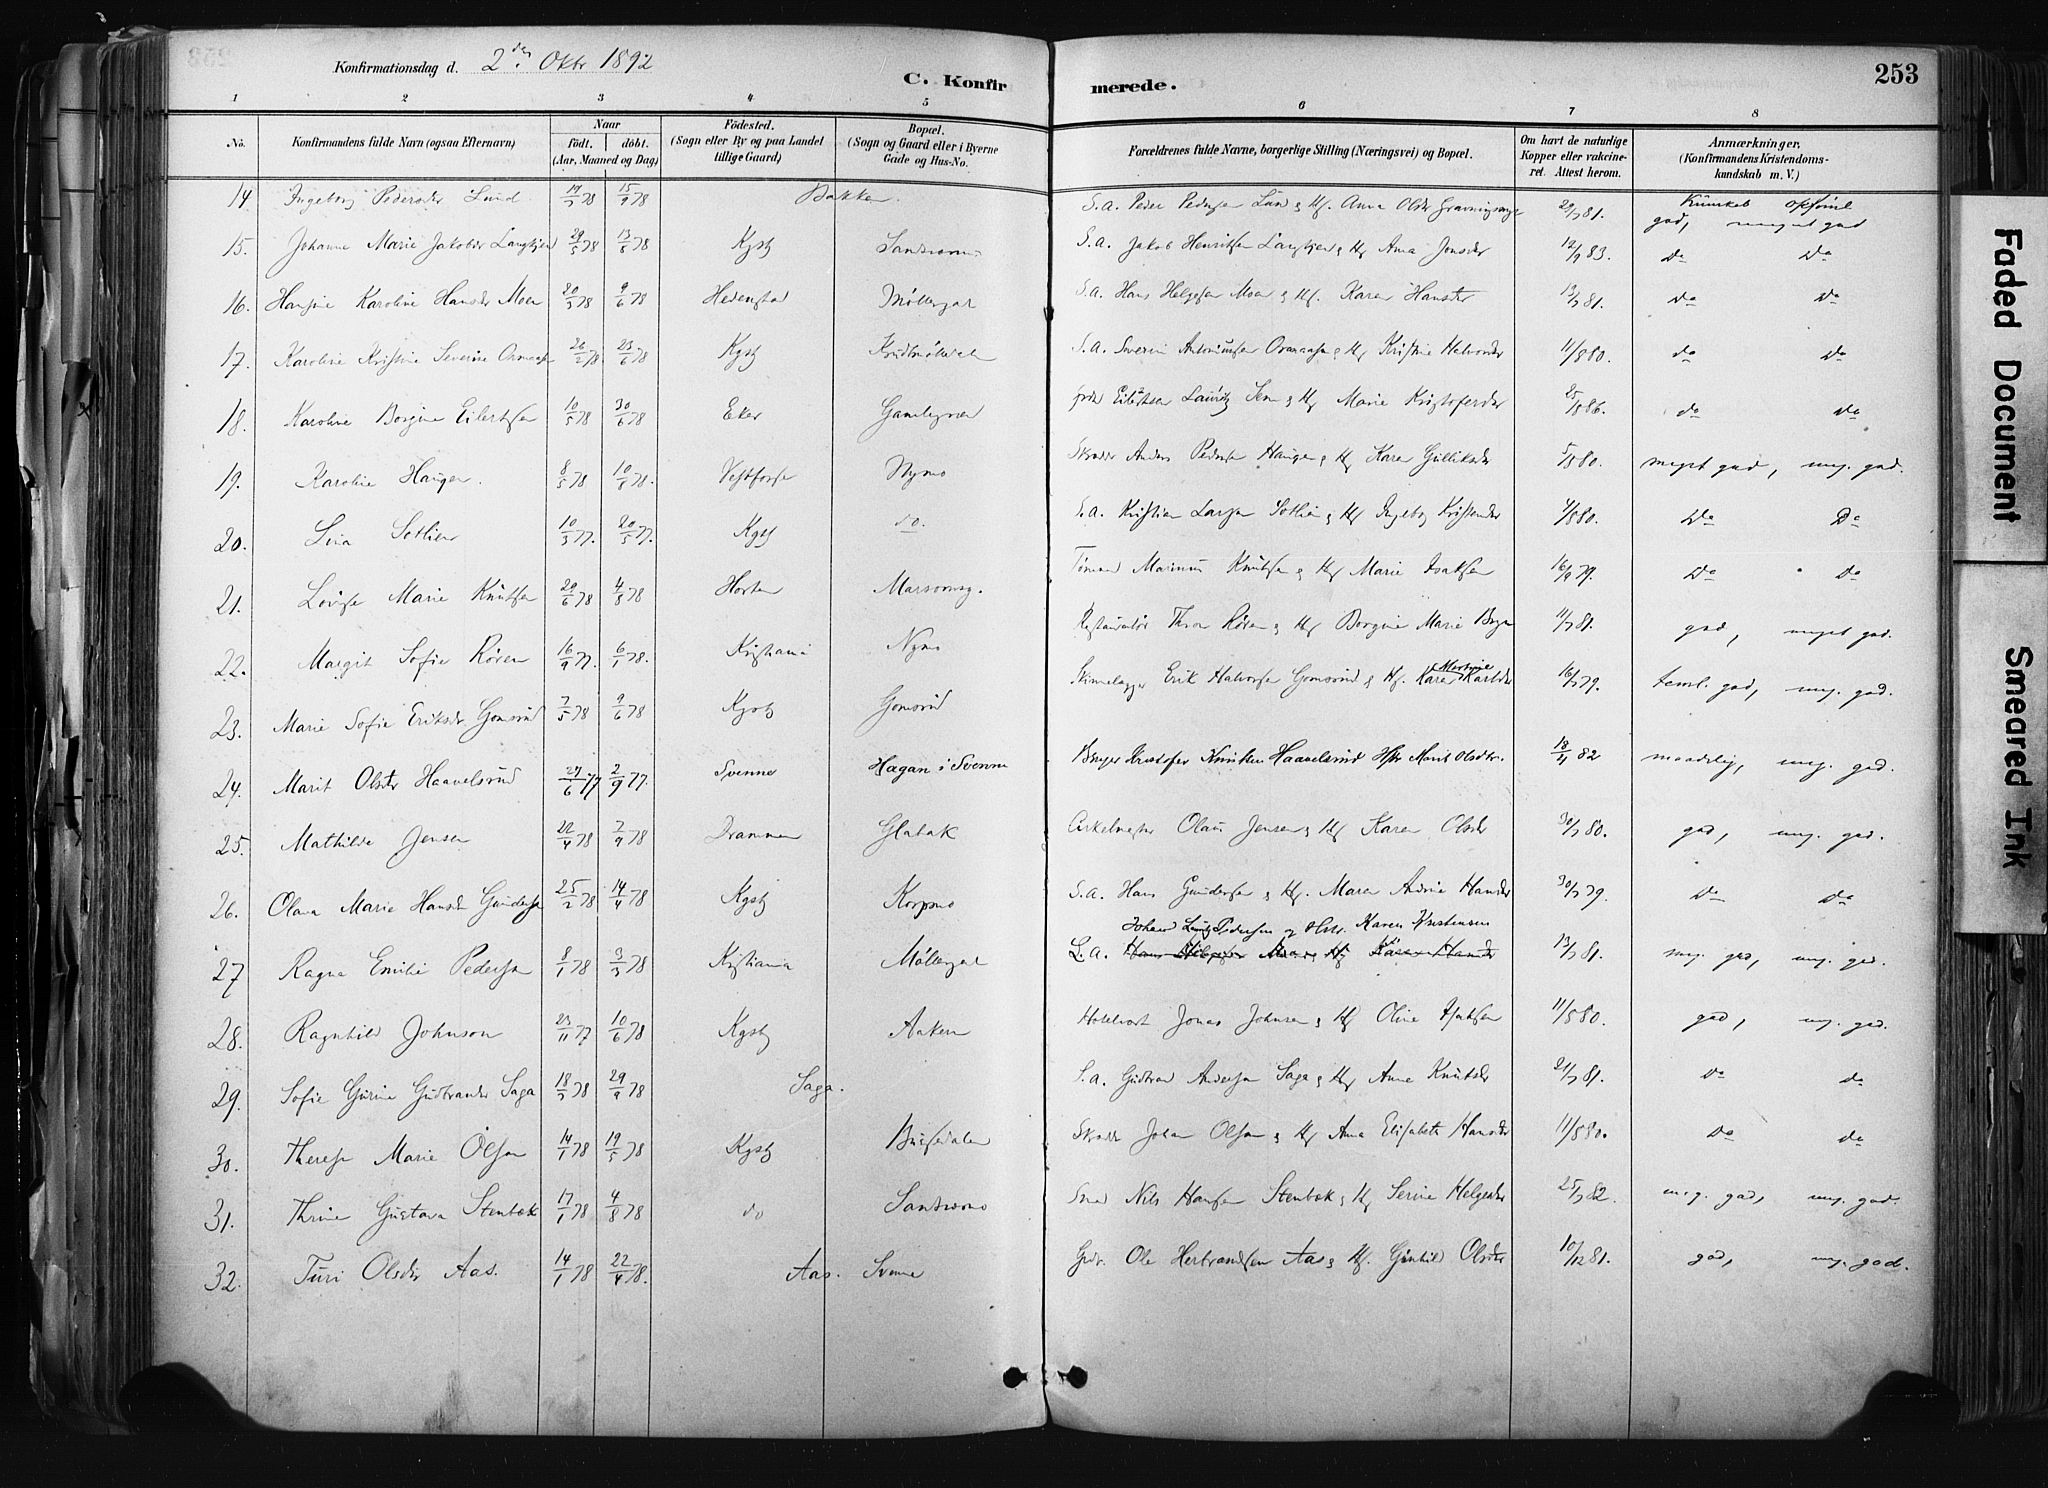 253
Konfirmationsdag d. 2den Oktbr 1892
C. Konfirmerede.
1 2 3 4 5 6 7 8
No.
Konfirmandens fulde Navn (ogsaa Efternavn)
Naar
født. døbt.
(Aar, Maaned og Dag)
Fødested.
(Sogn eller By og paa Landet tillige Gaard)
Bopæl.
(Sogn og Gaard eller i Byerne Gade og Hus-No.
Forældrenes fulde Navne, borgerlige Stilling (Næringsvei) og Bopæl.
Om havt de naturlige Kopper eller vakcineret. Attest herom.
Anmærkninger.
(Konfirmandens Kristendomskundskab m. V.)
14 Ingeborg Pedersdtr Lund 15/9 78 Bakken S.a. Peder Pedersen Lund & Hf. Anna Olsdtr 29/7 81. Kundskab Opførsel god, meget god
15. Johanne Marie Jakobsdr Langkjen 29/5 78 Kgsb Sandsværs S.a. Jakob Henriksen Langkjen & Hf Anna Jensdr 12/9 83. Do Do
16. Hansine Karoline Hansdr Moen 20/3 78 9/6 78 Hedenstad Møllergat S.a. Hans Helgesen Moen & Hf. Karen Hansdtr 13/7 81. Do Do
17. Karoline Kristine Severine 26/2 78 23/6 78 Kgsb S.a. Severin Antoniussen & Hf Kristine Halvorsdr 11/8 80. do Do
18. Karoline Borgine Eilertsen 10/5 78 30/6 78 Eker Eilertsen Lauritz & Hf Marie Kristofersdr 86. do do
19. Karoline Haugen. 8/5 78 10/8 78. Vestfosse Nymo Skredder Anders Pedersen Haugen & Hf Karen Gulliksdr 5/8 80. meget god, meg. god.
20. Lina Sotlien 10/3 77. 20/5 77. Kgsb do. S.a. Kristian Larsen Sotlien & Hf Ingeborg Kristensdr 80. Do Do
21. Lovise Marie Knutsen 20/6 78 4/8 78 Horten Tømm Marinus Knutsen & Hf Marie Isaksen 16/9 79. Do Do
22. Margit Sofie Røren 16/9 77. 6/1 78. Kristiania Nymo Restauratør Thron Røren & Hf Borgine Marie 11/7 81. god, meget god.
23. Marie Sofie Eriksdr Gomsrud 7/5 78 9/6 78 Kgsb Gomsrud Skindlægger Erik Halvorsen Gomsrud & Hf. Karen Martine Karlsdr 16/7 79. teml. god, meg. god.
24. Marit Olsdtr Haavelsrud 27/6 77 2/9 77. Svenne Hagan i Svenne Bruger Kristofer Knudsen Haavelsrud Hstr Marit Olsdtr. 18/4 82 maadelig, meg. god.
25. Mathilde Jensen 22/4 78 7/9 78 Drammen Glabak Cirkelmester Olaus Jensen & Hf Karen Olsdr 30/7 80. god, meg. god.
26. Olava Marie Hansdr Gundersen 25/2 78 14/4 78 Kgsb Korpmo S.a. Hans Gundersen & Hf. Maren Andrine Hansdr 30/7 79. Do Do
Johan Lauritz Pedersen og Hstr. Karen Kristensen
27 Ragna Emilie Pedersen 8/1 78 3/3 78 Kristiania Møllergat S.a. 13/7 81. meg. god, meg. god.
28. Ragnhild Johnson 23/11 77 10/6 78 Kgsb Aaken Hotelvært Jonas Johnsen & Hf Oline Isaksen 11/8 80. god, meg. god.
29. Sofie Gurine Gudbrandsdr Saga 18/7 78 29/9 78 Saga. S.a. Gudbrand Andersen Saga & Hf Anne Knutsdr 21/7 81. Do do
30. Therese Marie Olsen 14/1 78 19/5 78 Kgsb Skredd Johan Olsen & Hf Anna Elisabeth Hansdr 11/8 80. Do do
31. Thrine Gustava Stenbek 17/1 78 4/8 78 do Sandsværs Sned Nils Hansen Stenbek & Hf Serine Helgesdr 25/7 82. meg. god, meg. god.
32. Turi Olsdtr Aas. 14/1 78 22/4 78. Aas. Svenne Gdbr. Ole Herbrandsen Aas & Hf. Gunhild Olsdtr 10/12 81. god, meg. god.
Faded Document
Smeared Ink